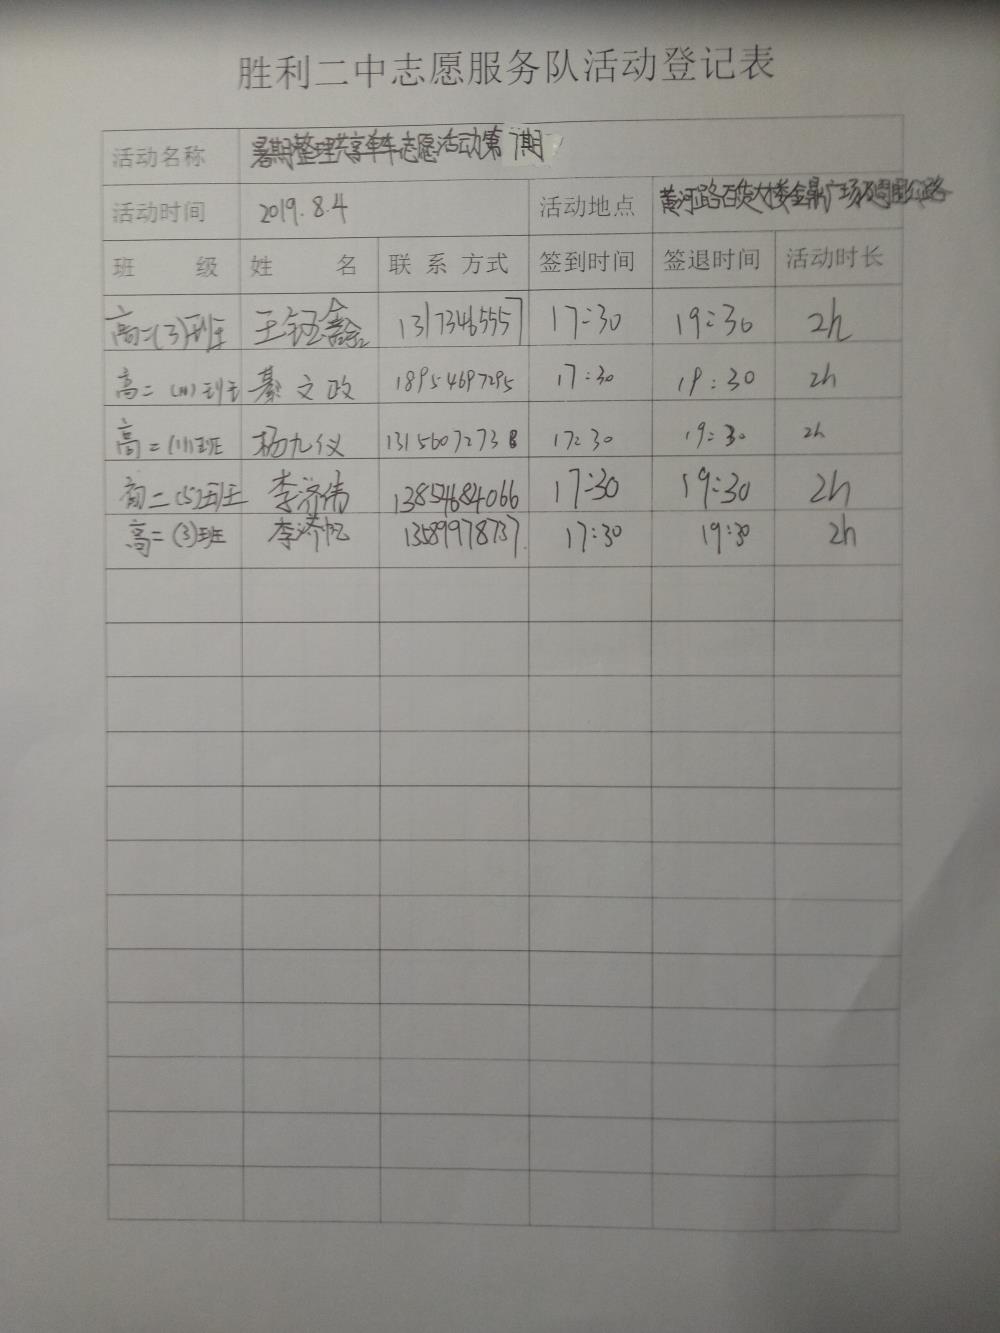 胜利二中志愿服务队活动登记表
活动名称 暑期整理共享单车志愿活动第7期
活动时间 2019.8.4 活动地点 黄河路百货大楼金鼎广场及周围公路
班 级 姓 名 联系方式 签到时间 签退时间 活动时长
高二(3)班 王钰鑫 13173465557 17:30 19:30 2h
高二 班 綦文政 18954697295 17:30 19:30 2h
高二(11)班 杨九仪 13156072738 17:30 19:30 2h
高二(5)班 李济伟 13854684066 17:30 19:30 2h
高二(3)班 李济帆 13589978737 17:30 19:30 2h